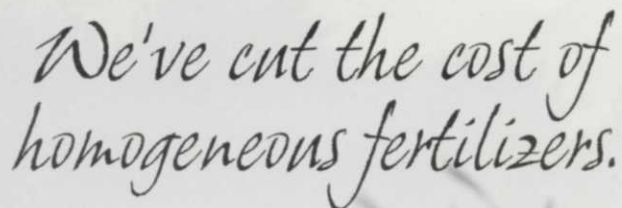 We've cut the cost of
homogeneous fertilizers.